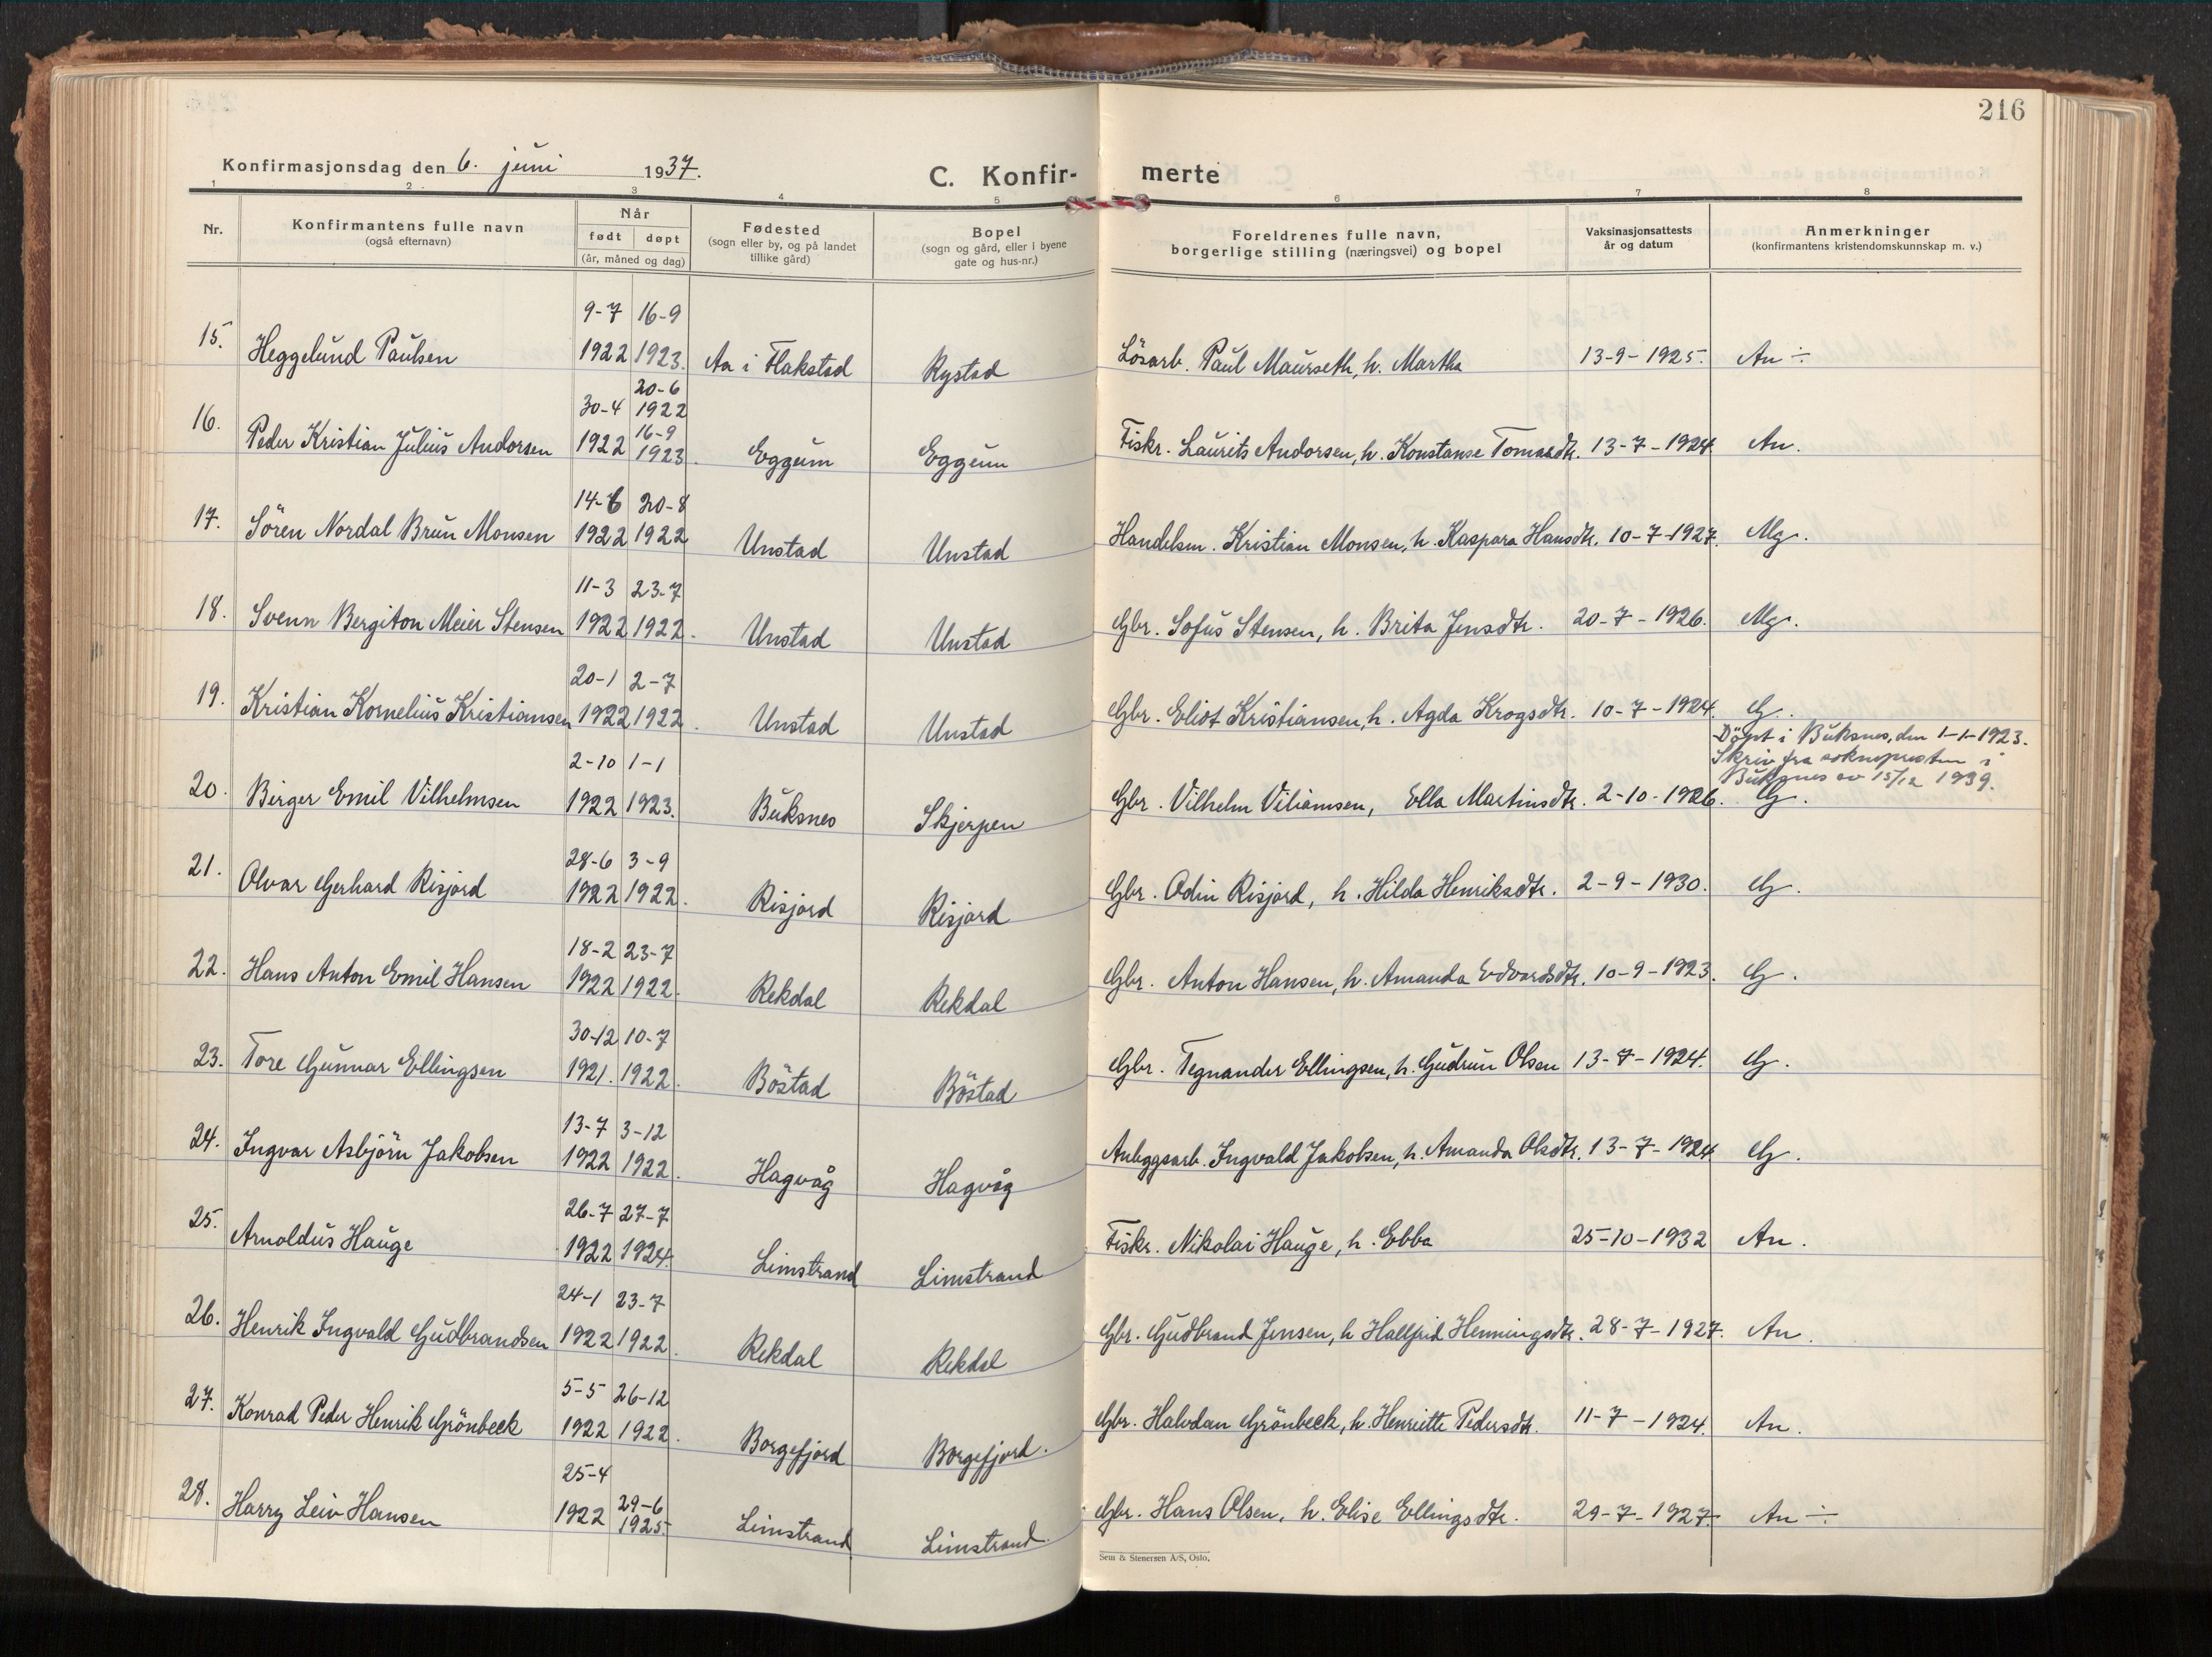 216
Konfirmasjonsdag den 6. juni 1937.
C. Konfir- merte
1 2 3 4 5 6 7 8
Nr.
Konfirmantens fulle navn
(også efternavn)
Når
født døpt
(år, måned og dag)
Fødested
(sogn eller by, og på landet
tillike gård)
Bopel
(sogn og gård, eller i byene
gate og hus-nr.)
Foreldrenes fulle navn,
borgerlige stilling (næringsvei) og bopel
Vaksinasjonsattests
år og datum
Anmerkninger
(konfirmantens kristendomskunnskap m. v.)
9-7 16-9
15. Heggelund Paulsen 1922 1923. Aa i Flakstad Rystad Lösarb. Paul Maurseth, h. Martha 13-9-1925. An ÷
20-6
30-4 1922
16. Peder Kristian Julius Andorsen 1922 16-9 1923. Eggum Eggum Fiskr. Laurits Andorsen, h. Konstanse Tomasdtr. 13-7-1924. An.
14-6 20-8
17. Sören Nordal Brun Monsen 1922 1922 Unstad Unstad Handelsm. Kristian Monsen, h. Kaspara Hansdtr. 10-7-1927. Mg.
11-3 23-7
18. Svenn Bergiton Meier Stensen 1922 1922. Unstad Unstad Gbr. Sofus Stensen, h. Brita Jensdtr. 20-7-1926. Mg.
20-1 2-7
19. Kristian Kornelius Kristiansen 1922 1922. Unstad Unstad Gbr. Eliot Kristiansen, h. Agda Krogsdtr. 10-7-1924. G.
Döpt i Buksnes, den 1-1-1923.
Skriv fra soknepresten i
Buksnes av 15/12 1939.
2-10 1-1
20. Birger Emil Vilhelmsen 1922 1923. Buksnes Skjerpen Gbr. Vilhelm Viliamsen, Ella Martinsdtr. 2-10-1926. G.
28-6 3-9
21. Olvar Gerhard Risjord 1922 1922. Risjord Risjord Gbr. Odin Risjord, h. Hilda Henriksdtr. 2-9-1930. G.
18-2 23-7
22. Hans Anton Emil Hansen 1922 1922. Rekdal Rekdal Gbr. Anton Hansen, h. Amanda Edvardsdtr. 10-9-1923. G.
30-12 10-7
23. Tore Gunnar Ellingsen 1921. 1922. Böstad Böstad Gbr. Tegnander Ellingsen, h. Gudrun Olsen 13-7-1924. G.
13-7 3-12
24. Ingvar Asbjörn Jakobsen 1922 1922. Hagvåg Hagvåg Anleggsarb. Ingvald Jakobsen, h. Amanda Olsdtr. 13-7-1924 G.
26-7 27-7
25. Arnoldus Hauge 1922 1924. Limstrand Limstrand Fiskr. Nikolai Hauge, h. Ebba 25-10-1932 An.
24-1 23-7
26. Henrik Ingvald Gudbrandsen 1922 1922. Rekdal Rekdal Gbr. Gudbrand Jensen, h Hallfrid Henningsdtr. 28-7-1927. An.
5-5 26-12
27. Konrad Peder Henrik Grönbeck 1922 1922. Borgefjord Borgefjord. Gbr. Halvdan Grönbeck, h. Henriette Pedersdtr. 11-7-1924. An.
25-4
28. Harry Leiv Hansen 1922 29-6 1925 Limstrand Limstrand. Gbr. Hans Olsen, h. Elise Ellingsdtr. 29-7-1927. An ÷
Sem & Stenersen A/S, Oslo.